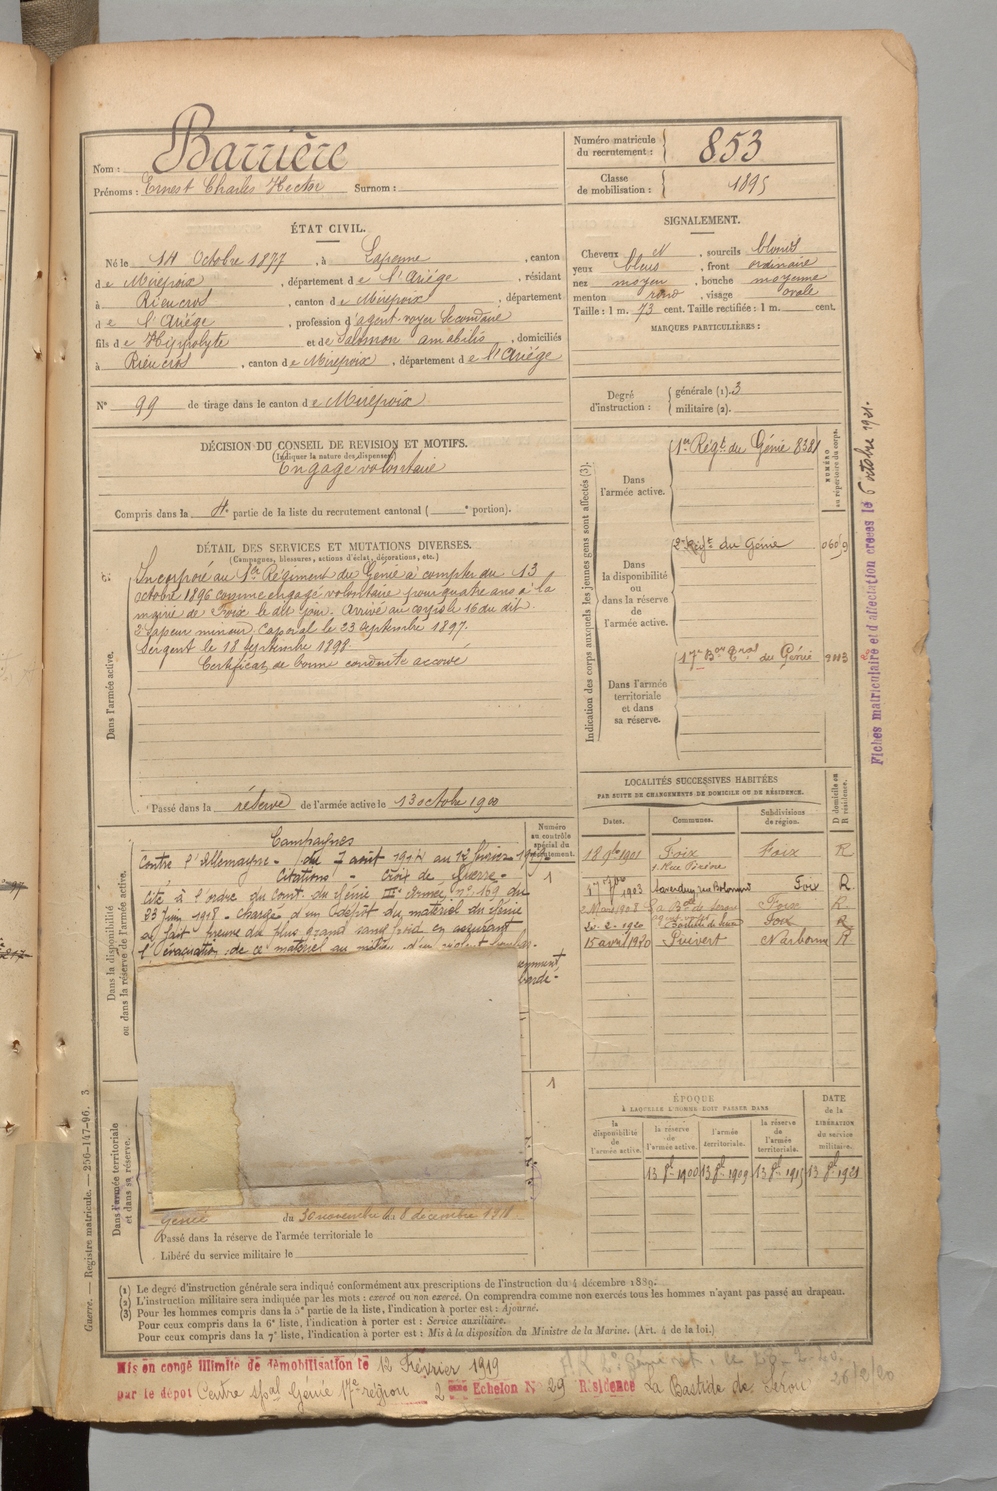 Nom : Barrière
Prénoms : Ernest Charles Hector Surnom :
Numéro matricule du recrutement : 853
Classe de mobilisation : 1895
ÉTAT CIVIL.
Né le 14 Octobre 1877, à Lapenne, canton
de Mirepoix, département de l'Ariége, résidant
à Rieucros, canton de Mirepoix, département
de l'Ariége, profession d'agent-voyer Secondaire
fils de Hippolyte et de Salomon amabilis, domiciliés
à Rieucros, canton de Mirepoix, département de l'Ariége
N° 99 de tirage dans le canton de Mirepoix
SIGNALEMENT.
Cheveux bl N, sourcils blonds
yeux bleus, front ordinaire
nez moyen, bouche moyenne
menton rond, visage ovale
Taille : 1 m. 73 cent. Taille rectifiée : 1 m. cent.
MARQUES PARTICULIÈRES :
Degré d'instruction : générale (1). 3
militaire (2).
DÉCISION DU CONSEIL DE REVISION ET MOTIFS.
(Indiquer la nature des dispenses)
Engagé volontaire
Compris dans la 4e partie de la liste du recrutement cantonal ( e portion).
DÉTAIL DES SERVICES ET MUTATIONS DIVERSES.
(Campagnes, blessures, actions d'éclat, décorations, etc.)
Dans l'armée active.
Incorporé au 1er Régiment du Génie à compter du 13
octobre 1896 comme engagé volontaire pour quatre ans à la
mairie de Foix le dit jour. Arrivé au corps le 16 du dit.
2e Sapeur mineur, Caporal le 23 Septembre 1897.
Sergent le 18 Septembre 1898.
Certificat de bonne conduite accordé
Passé dans la réserve de l'armée active le 13 octobre 1900
Indication des corps auxquels les jeunes gens sont affectés (3).
NUMÉRO au répertoire du corps.
Dans l'armée active.
1er Régt du Génie 8381
Dans la disponibilité ou dans la réserve de l'armée active.
2e Régt du Génie 0609
Dans l'armée territoriale et dans sa réserve.
17e Bon Tral du Génie
Fiches matriculaire et d'affectation creees le 6 octobre 1921.
Dans la disponibilité ou dans la réserve de l'armée active.
Numéro au contrôle spécial du recrutement.
Campagnes
Contre l'Allemagne - du 7 août 1914 au 12 février 1919
Citations - Croix de Guerre -
Cité à l'ordre du Comt du Génie IIIe Armée, n° 169 du
23 Juin 1918 - Chargé d'un dépôt du matériel du Génie
a fait preuve du plus grand sang froid en assurant
l'évacuation de ce matériel au milieu d'un violent bombar-
1
1
Dans l'armée territoriale et dans sa réserve.
Génie du 30 novembre au 8 decembre 1911
Passé dans la réserve de l'armée territoriale le
Libéré du service militaire le
LOCALITÉS SUCCESSIVES HABITÉES
PAR SUITE DE CHANGEMENTS DE DOMICILE OU DE RÉSIDENCE.
Dates. Communes. Subdivisions de région. D domicile ou R résidence.
1901 Foix Foix R
1903 Foix R
1908 La Bde de Serou Foix R
2-1920 Foix R
15 avril 1920 Puivert Narbonne R
ÉPOQUE
À LAQUELLE L'HOMME DOIT PASSER DANS
DATE de la LIBÉRATION du service militaire.
la disponibilité de l'armée active. la réserve de l'armée active. l'armée territoriale. la réserve de l'armée territoriale.
13 8bre 1900 13 8bre 1909 13 8bre 1915 13 8bre 1921
Guerre. — Registre matricule. — 256-147-96. 3
(1) Le degré d'instruction générale sera indiqué conformément aux prescriptions de l'instruction du 4 décembre 1889.
(2) L'instruction militaire sera indiquée par les mots : exercé ou non exercé. On comprendra comme non exercés tous les hommes n'ayant pas passé au drapeau.
(3) Pour les hommes compris dans la 5e partie de la liste, l'indication à porter est : Ajourné.
Pour ceux compris dans la 6e liste, l'indication à porter est : Service auxiliaire.
Pour ceux compris dans la 7e liste, l'indication à porter est : Mis à la disposition du Ministre de la Marine. (Art. 4 de la loi.)
Mis en congé illimité de démobilisation le 12 Février 1919
par le dépôt Centre spal Génie 17e région 2 ème Echelon N° 29 Résidence La Bastide de Sérou
26/2/20